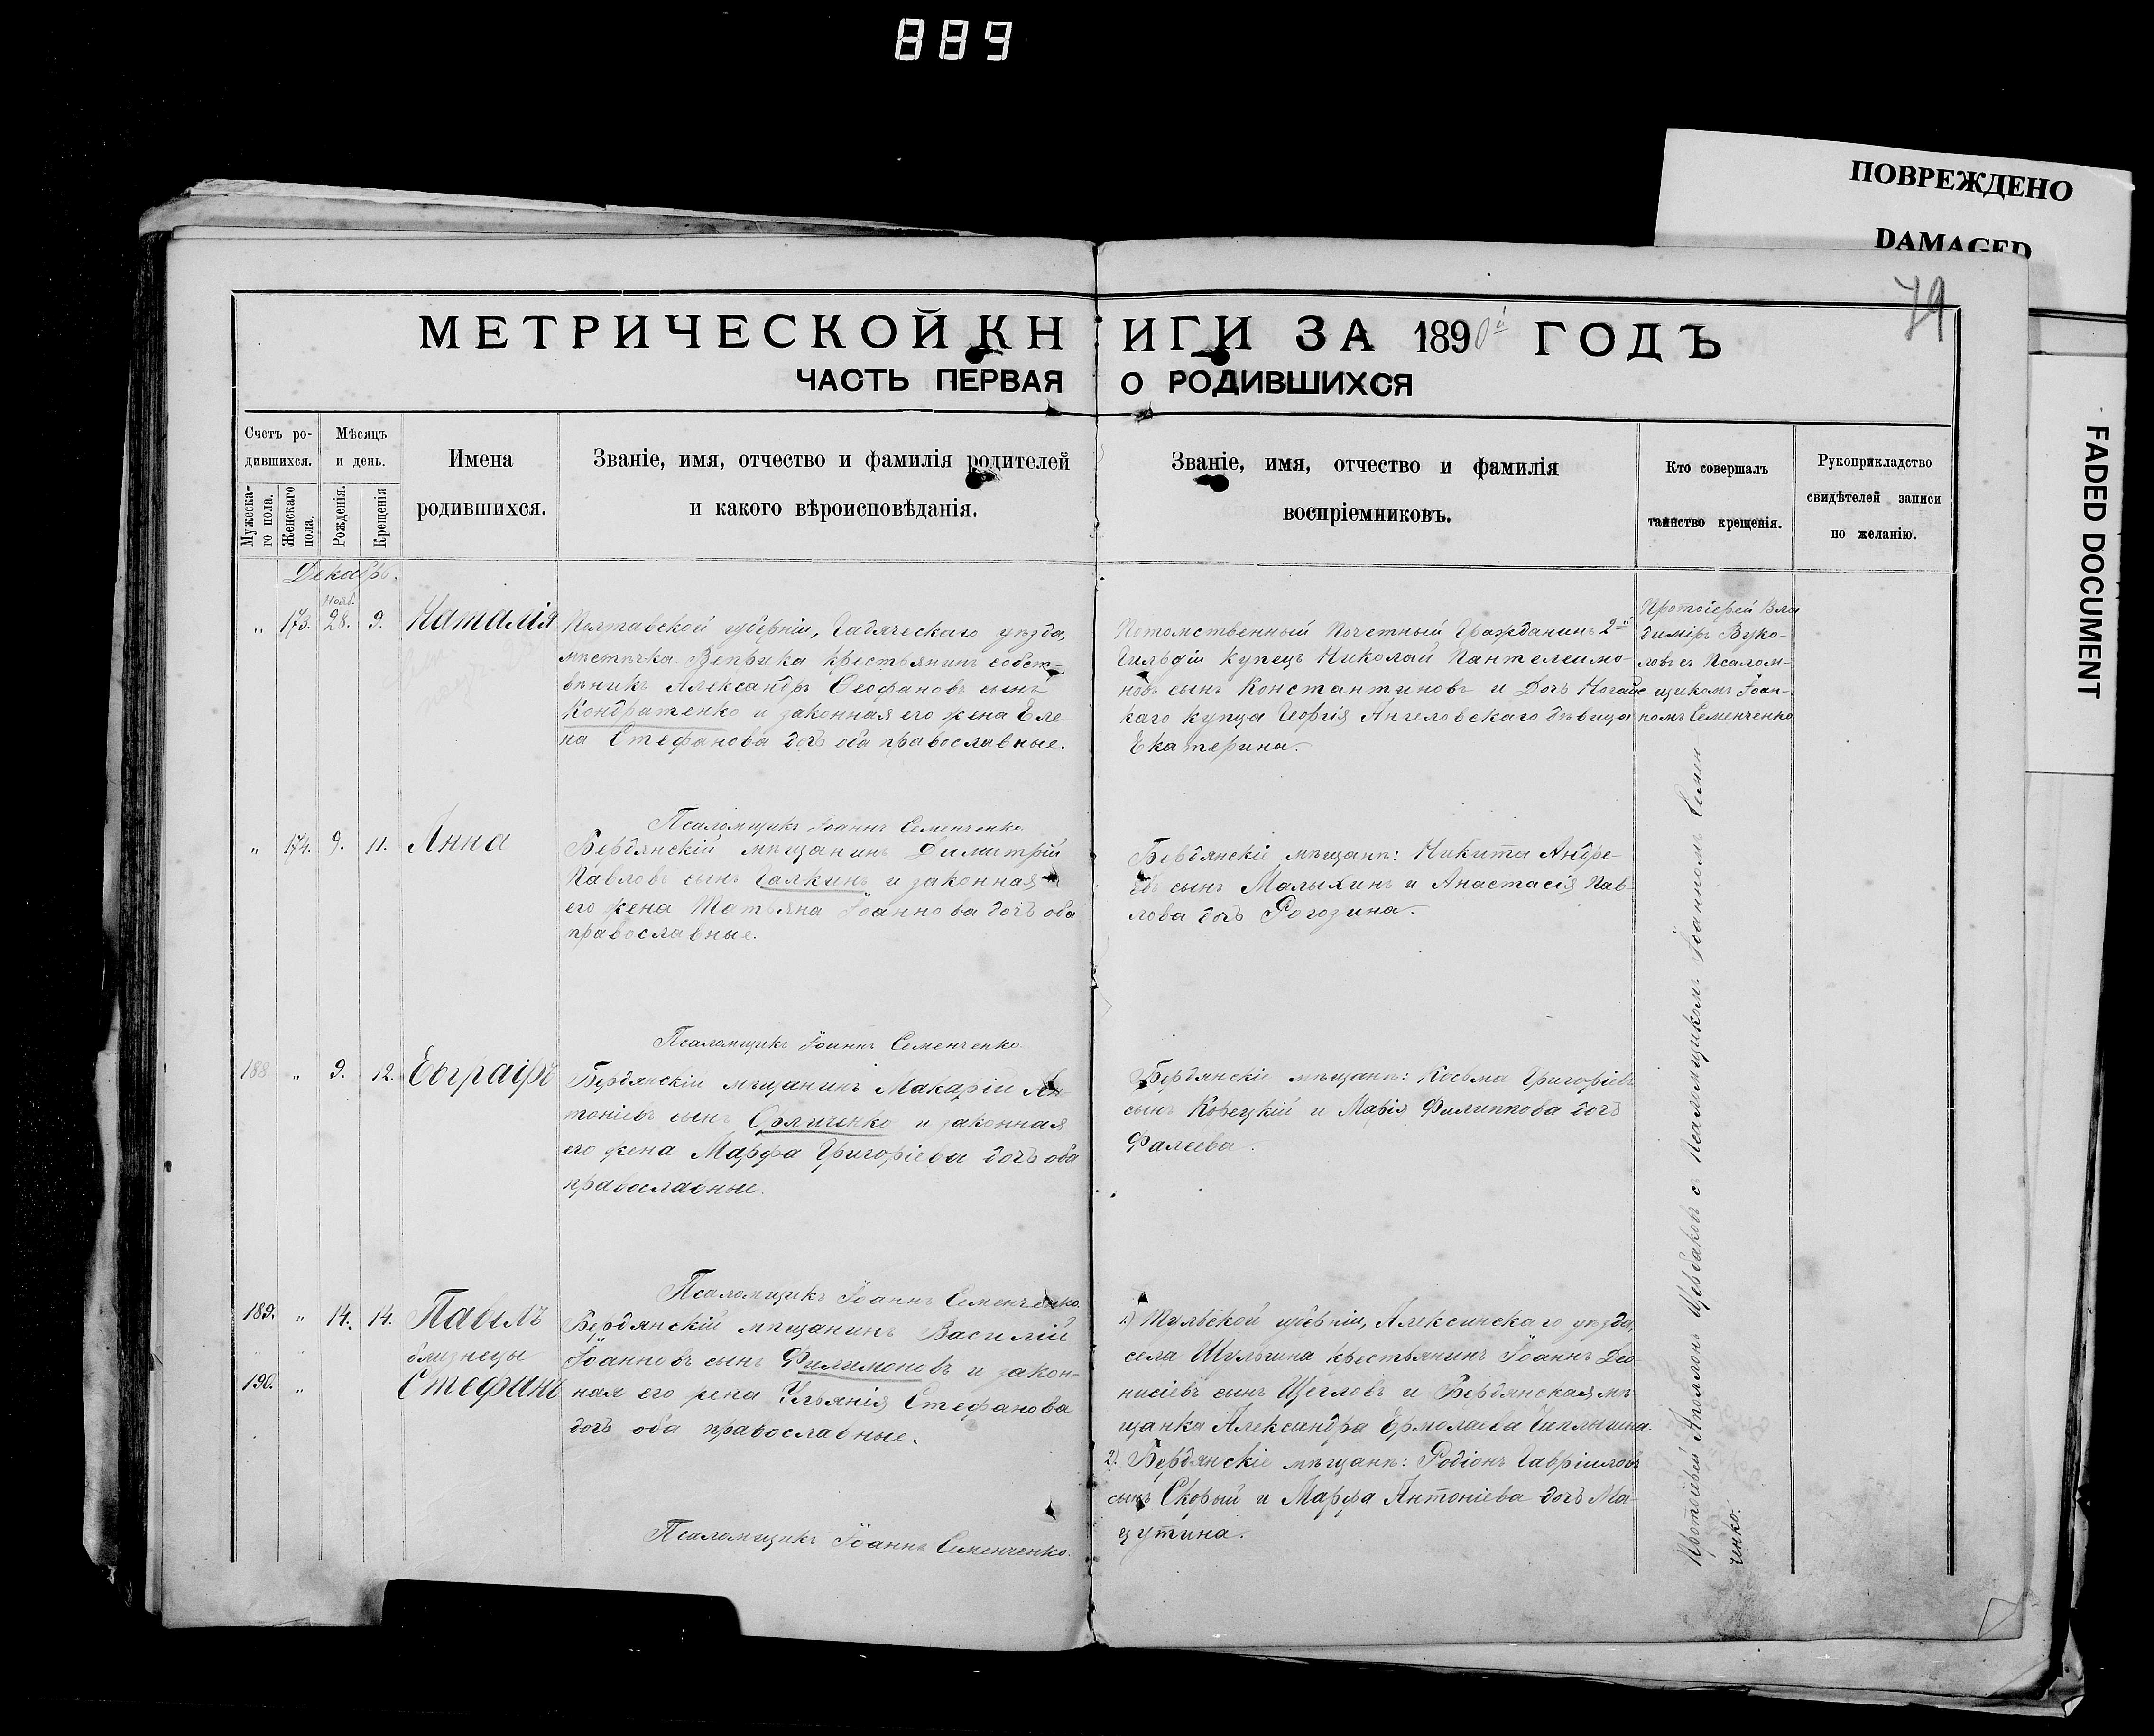 889
ПОВРЕЖДЕНО
DAMAGED
FADED DOCUMENT
79
МЕТРИЧЕСКОЙ КНИГИ ЗА 1890й ГОДЪ
ЧАСТЬ ПЕРВАЯ О РОДИВШИХСЯ
Счетъ ро-
дившихся.
Мужеска-
го пола.
Женскаго
пола.
Мѣсяцъ
и день.
Рожденія.
Крещенія
Имена
родившихся.
Званіе, имя, отчество и фамилія родителей
и какого вѣроисповѣданія.
Званіе, имя, отчество и фамилія
воспріемниковъ.
Кто совершалъ
таинство крещенія.
Рукоприкладство
свидѣтелей записи
по желанію.
Декабрь.
Нояб.
" 173. 28. 9. Наталія
Полтавской губерніи, Гадяческаго уѣзда,
мѣстечка Веприка крестьянинъ собст-
вѣникъ Александръ Ѳеофановъ сынъ
Кондратенко и законная его жена Еле-
на Стефанова дочь оба православные.
Потомственный Почетный Гражданинъ 2й
Гильдіи купецъ Николай Пантелеимо-
новъ сынъ Константиновъ и Дочь Ногайс-
каго купца Георгія Ангеловскаго дѣвица
Екатерина.
Протоіерей Вла
диміръ Вуко-
ловъ съ Псалом-
щикомъ Іоан-
номъ Семенченко
Псаломщикъ Іоаннъ Семенченко
" 174. 9. 11. Анна
Бердянскій мѣщанинъ Димитрій
Павловъ сынъ Галкинъ и законная
его жена Татьяна Іоаннова дочь оба
православные.
Бердянскіе мѣщане: Никита Андре-
евъ сынъ Малыхинъ и Анастасія Пав-
лова дочь Рогозина.
Псаломщикъ Іоаннъ Семенченко.
188 " 9. 12. Евграфъ
Бердянскій мѣщанинъ Макарій Ан-
тоніевъ сынъ и законная
его жена Марфа Григоріева дочь оба
православные.
Бердянскіе мѣщане: Косьма Григоріевъ
сынъ Корецкій и Марія Филиппова дочь
Фалеева.
Псаломщикъ Іоаннъ Семенченко.
189. " 14. 14. Павелъ
близнецы
190. " Стефанъ
Бердянскій мѣщанинъ Василій
Іоанновъ сынъ Филимоновъ и закон-
ная его жена Ульянія Стефанова
дочь оба православные.
1) Тульской губерніи, Алексинскаго уѣзда,
села Шульгина крестьянинъ Іоаннъ Део-
нисіевъ сынъ Щегловъ и Бердянская мѣ-
щанка Александра Ермолаева Чаплыгина.
2). Бердянскіе мѣщане: Родіонъ Гавріиловъ
сынъ Скорый и Марфа Антоніева дочь Ма-
цутина.
Псаломщикъ Іоаннъ Семенченко.
Протоіерей Аполлонъ Щербаковъ съ Псаломщикомъ Іоанномъ Семен
ченко.